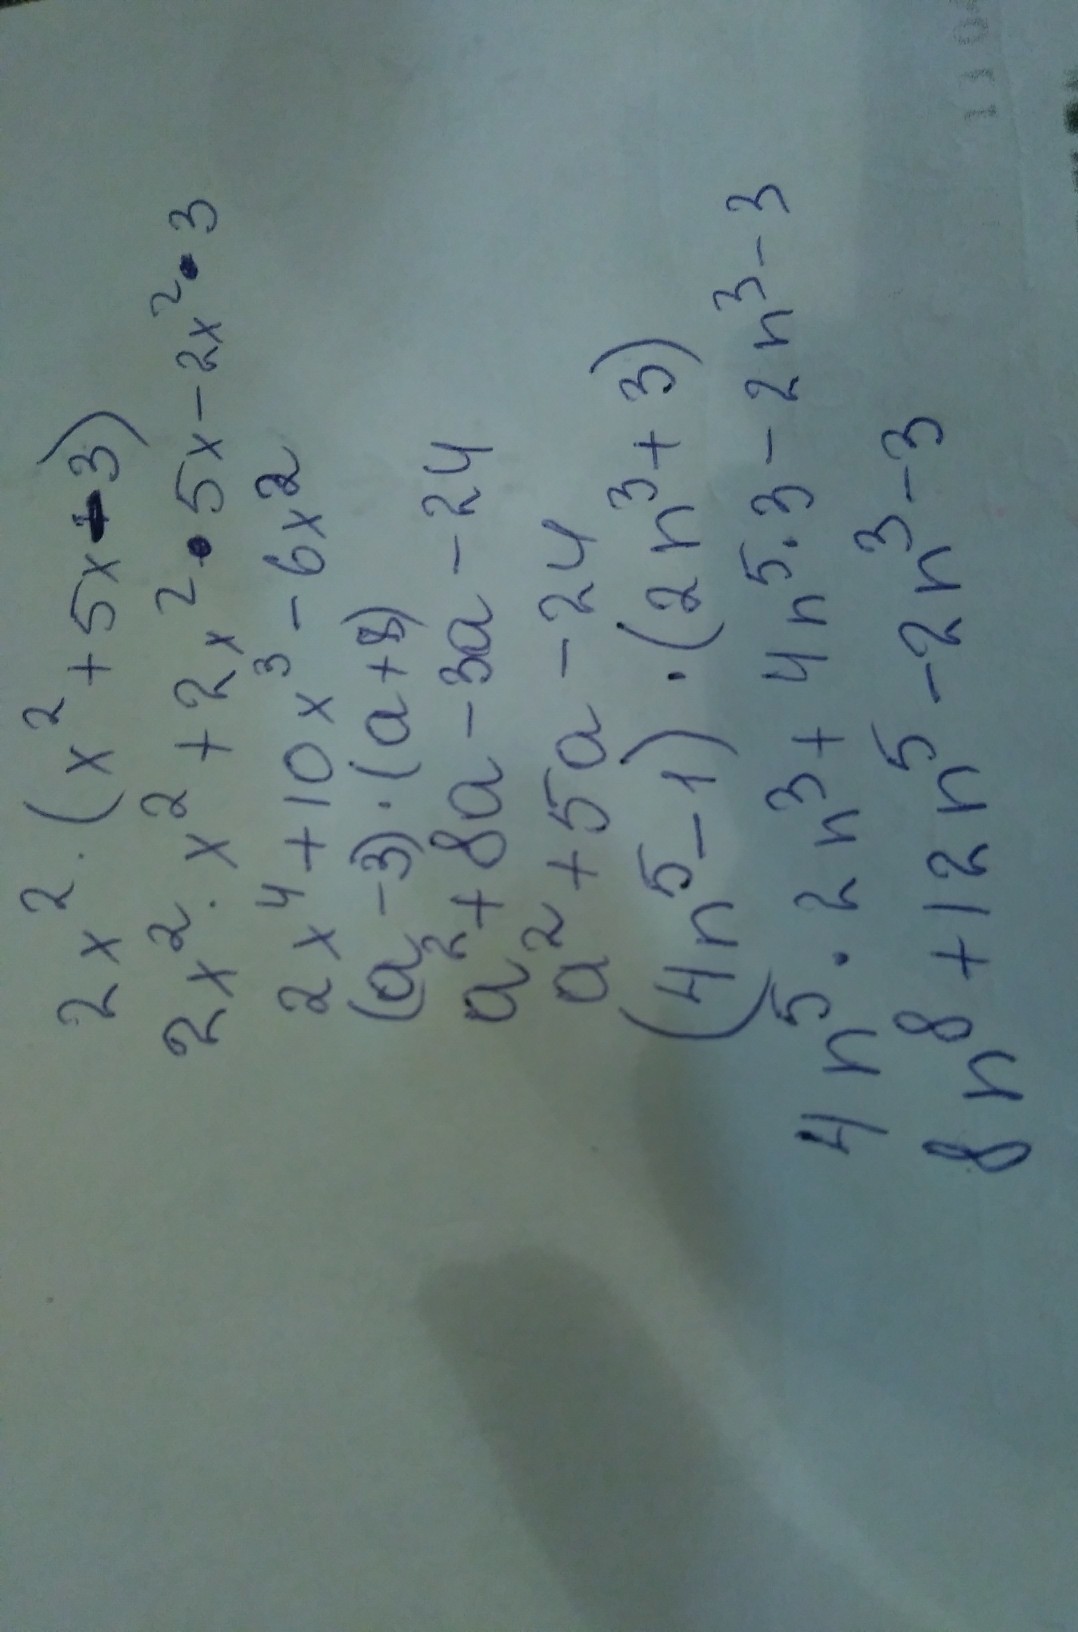 2x² · (x² + 5x - 3)
2x² · x² + 2x² · 5x - 2x² · 3
2x⁴ + 10x³ - 6x²
(a - 3) · (a + 8)
a² + 8a - 3a - 24
a² + 5a - 24
(4n⁵ - 1) · (2n³ + 3)
4n⁵ · 2n³ + 4n⁵ · 3 - 2n³ - 3
8n⁸ + 12n⁵ - 2n³ - 3